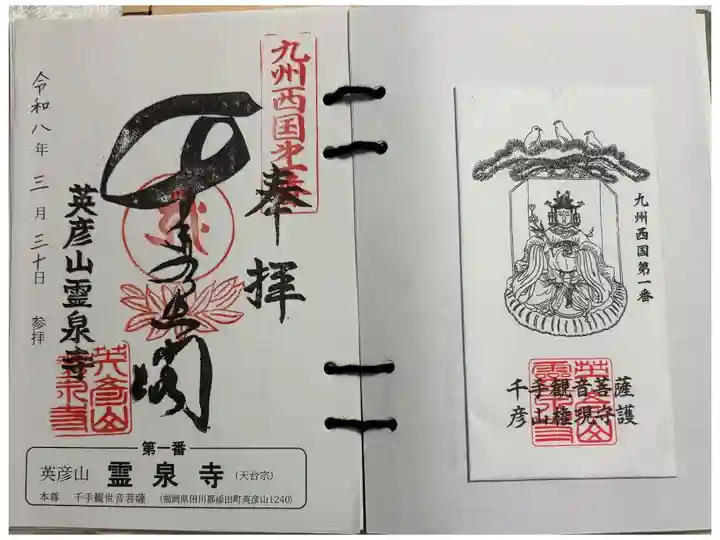 九州西国第一番
奉拝
千手大悲閣
英彦山霊泉寺
令和八年三月三十日 参拝
英彦山霊泉寺
第一番
英彦山 霊泉寺 (天台宗)
本尊 千手観世音菩薩 (福岡県田川郡添田町英彦山1240)
九州西国第一番
千手観音菩薩
彦山権現守護